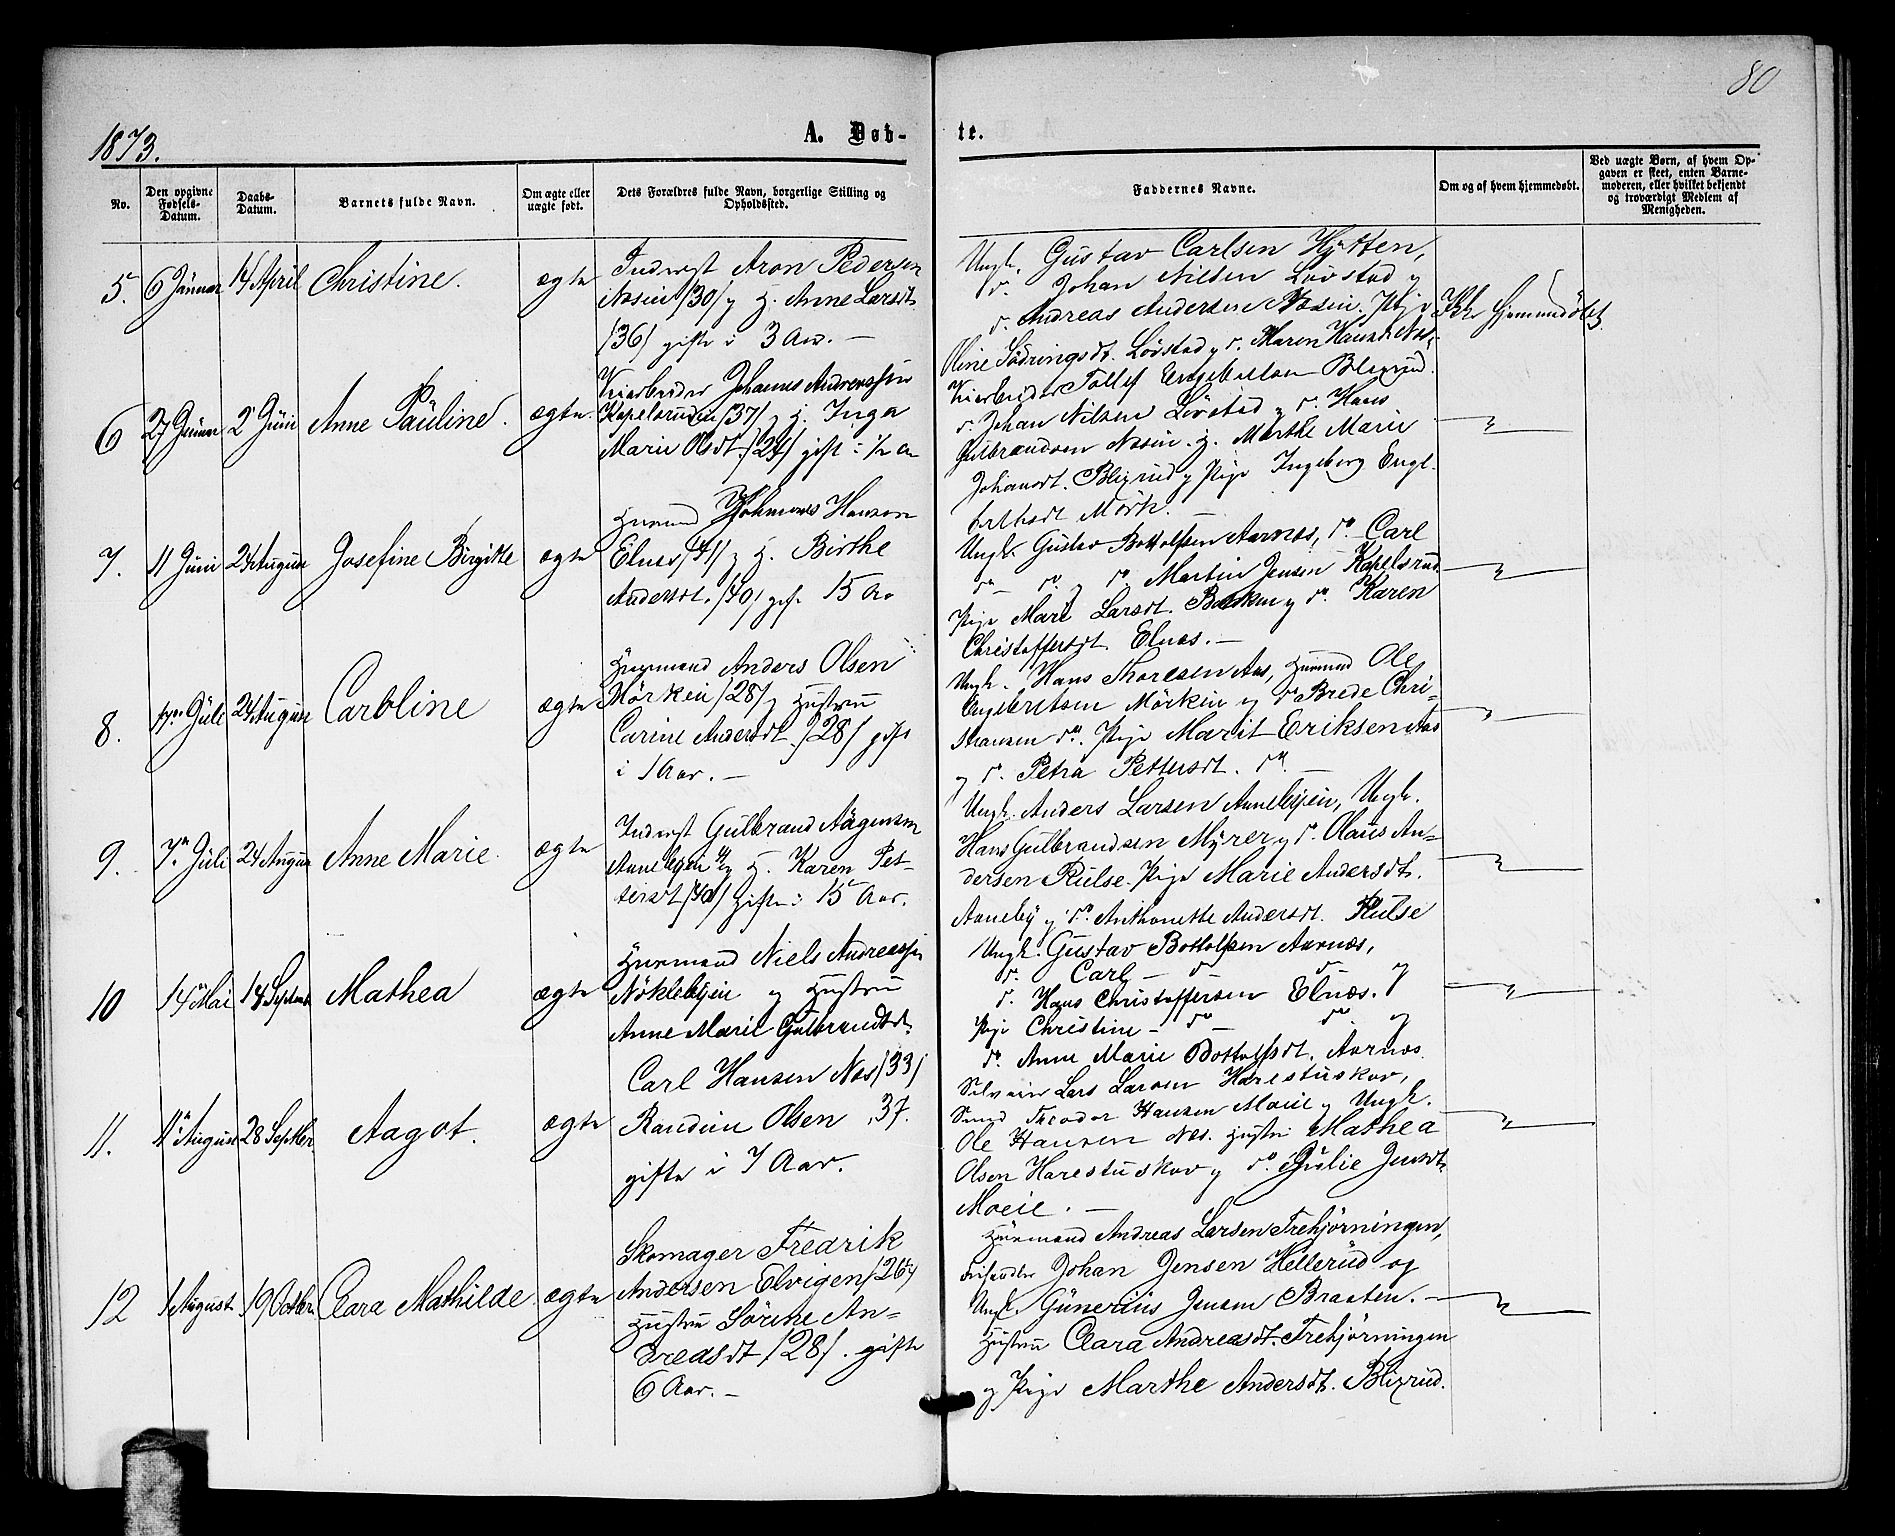 80
1873.
A. Døb-
te.
No.
Den opgivne Fødsels-Datum.
Daabs-Datum.
Barnets fulde Navn.
Om ægte eller uægte født.
Dets Forældres fulde Navn, borgerlige Stilling og Opholdssted.
Faddernes Navne.
Om og af hvem hjemmedøbt.
Ved uægte Børn, af hvem Opgaven er skeet, enten Barnemoderen, eller hvilket bekjendt og troværdigt Medlem af Menigheden.
5. 6 Januar 14 April Christine. ægte
Inderst Aron Pedersen
Næsin /30/ og H. Anne Larsdt.
/36/ gifte i 3 Aar. —
Ungk. Gustav Carlsen Hytten,
do. Johan Nilsen Lövstad og
do. Andreas Andersen Næsin. Pige
Oline Södringsdt. Lövstad og do. Maren Hansdt. Næs.
Ikke hjemmedöbt
6 27 Januar 2 Juni Anne Pauline. ægte.
Veiarbeider Johannes Andreassen
Kapelsruden /37/ og H. Inga
Marie Olsdt. /24/ gift i ½ Aar
Veiarbeider Tollef Engebretsen Blegrud.
do. Johan Nilsen Lövstad og do. Hans
Gulbrandsen Næsin. H. Marthe Marie
Johansdt. Blixrud og Pige Ingeborg Engl-
bretsdt Mörk. —
7. 11 Juni 24 August Josefine Birgitte ægte
Huusmand Johannes Hansen
Elnæs /41/ og H. Birthe
Andersdt. /40/ gifte 15 Aar
Ungk. Gustav Bottolfsen Aarnæs, do Carl
do — do. og do. Martin Jensen Kapelsrud
Pige Mari Larsdt. Bakken og do. Karen
Christoffersdt. Elnæs. —
8. Juli 24 August Caroline ægte
Huusmand Anders Olsen
Mörkein /28/ og Hustru
Carine Andersdt. /28/ gifte
i 1 Aar. —
Ungk. Hans Thoresen Aas, Huusmand Ole
Engebretsen Mörkin og do Brede Chri-
stiansen do. Pige Marit Eriksen Aas
og do. Petra Pettersdt. do. —
9. 7. Juli 24 August Anne Marie. ægte
Inderst Gulbrand Aagensen
Annebyen og H. Karen Pet-
tersdt /40/ gifte i 15 Aar.
Ungk. Anders Larsen Annebyen, Ungk.
Hans Gulbrandsen Myrer og do. Olaus An-
dersen Rulse. Pige Marie Andersdt.
Aaneby og do. Anthonette Andersdt. Rulse
10 14 Mai 14 Septemb. Mathea ægte
Huusmand Niels Andreassen
Nöklebyen og Hustru
Anne Marie Gulbrandsdt.
Ungk. Gustav Bottolfsen Aarnæs,
do. Carl — do — do — og
do. Hans Christoffersen Elnæs. og
Pige Christine — do — do. og
do. Anne Marie Bottolfsdt. Aarnæs.
11. 11 August 28 Septbr. Aagot. ægte
Carl Hansen Næs /33/
Randine Olsen, 37.
gifte i 7 Aar.
Selveier Lars Larsen Harestuskov,
Smed Theodor Hansen Moeie og Ungk.
Ole Hansen Næs. Hustru Mathea
Olsen Harestuskov og do. Julie Jensdt.
Moeie. —
12 1 August 19 Octbr. Clara Mathilde. ægte
Skomager Fredrik
Andersen Elvigen /26/ og
Hustru Sörine An-
dreasdt /28/. gifte
6 Aar. —
Huusmand Andreas Larsen Trehjörningen,
Johan Jensen Hellerud og
Ungk. Gunerius Jensen Braaten. —
Hustru Clara Andreasdt. Trehjörningen
og Pige Marthe Andersdt. Blixrud.